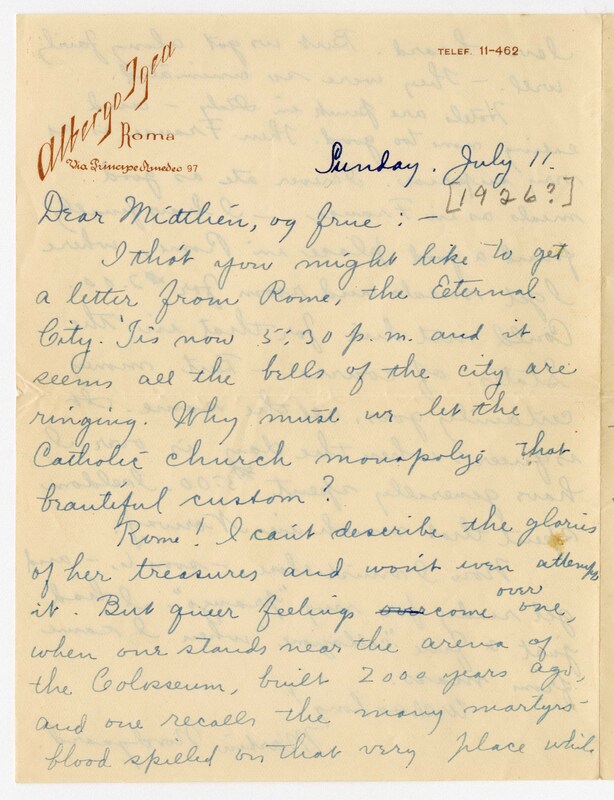 TELEF. 11-462
Albergo Igea
Roma
Via Principe Amedeo 97
Sunday. July 11.
[1926?]
Dear Midthien, og frue: -
I that you might like to get
a letter from Rome, the Eternal
City. 'Tis now 5:30 p.m. and it
seems all the bells of the city are
ringing. Why must we let the
Catholic church monopolyze that
beautiful custom?
Rome! I can't describe the glories
of her treasures and won't even attempt
it. But queer feelings over come over one,
when one stands near the arena of
the Colosseum, built 2000 years ago,
and one recalls the many martyrs
blood spilled on that very place while